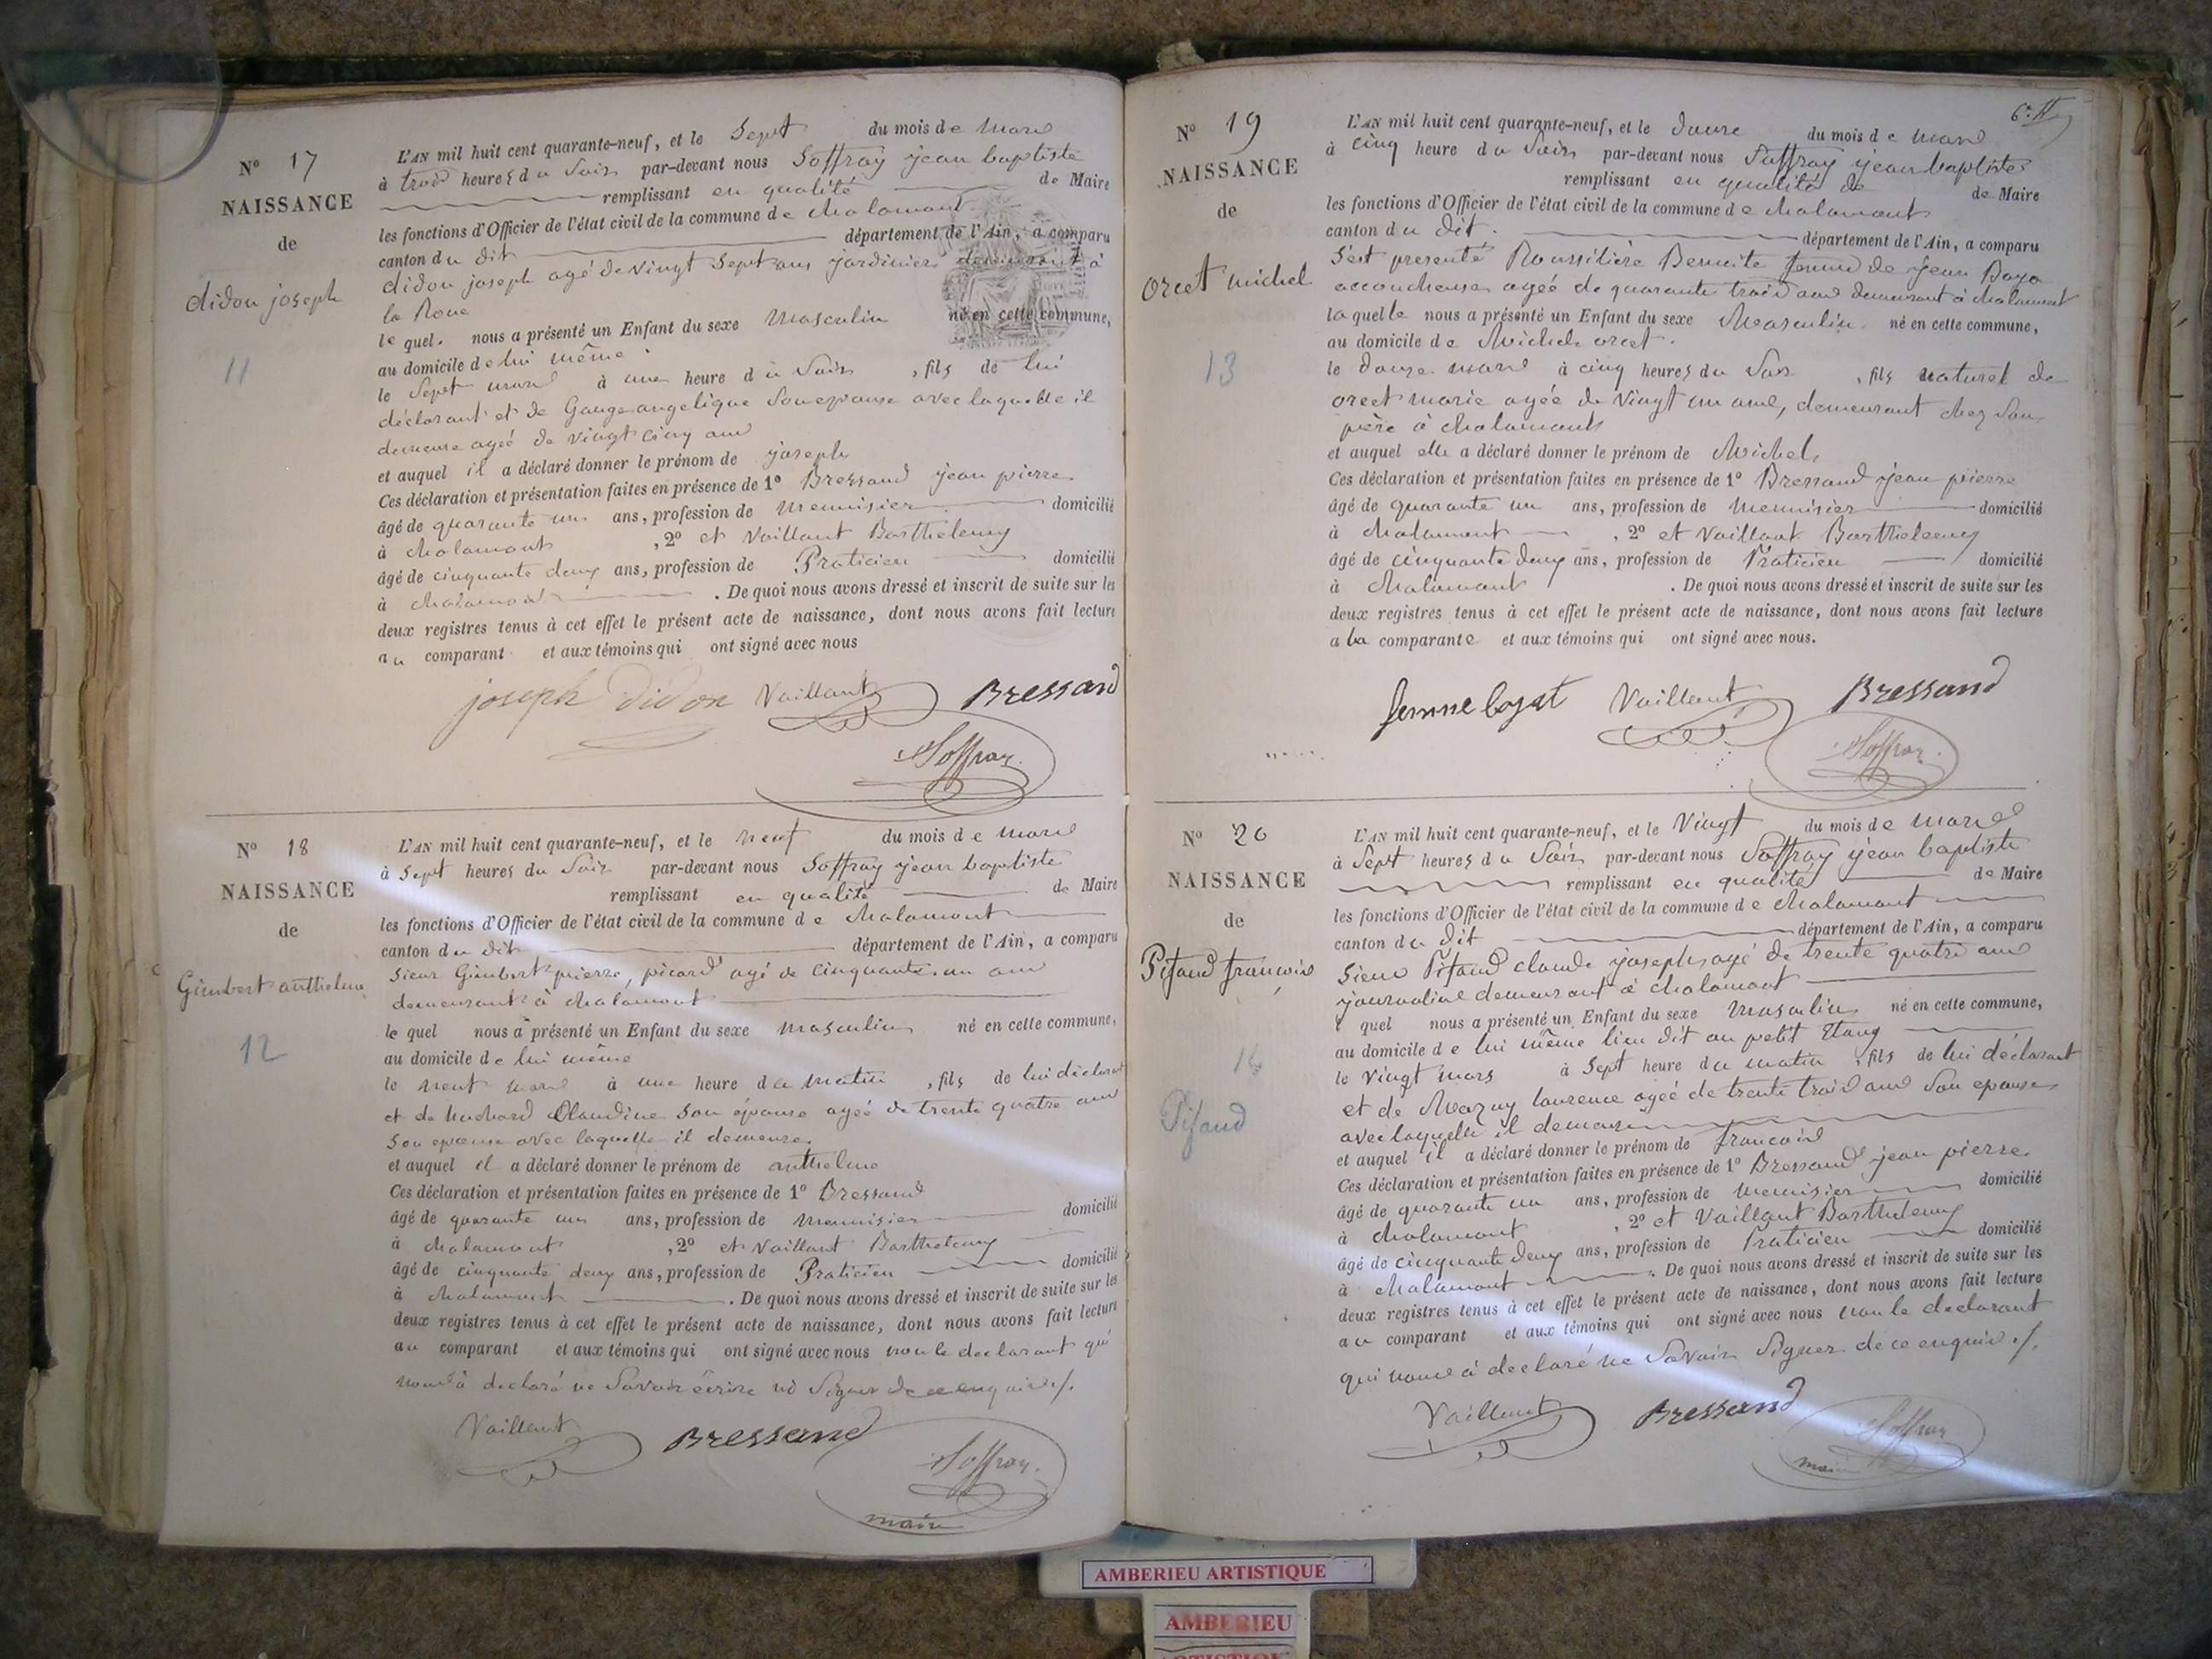 N° 17
NAISSANCE
de
didon joseph
11
L'AN mil huit cent quarante-neuf, et le Sept du mois de mars
à trois heures du Soir par-devant nous Soffray jean baptiste
remplissant en qualité de Maire
les fonctions d'Officier de l'état civil de la commune de chalamont
canton du dit département de l'Ain, a comparu
didon joseph agé de vingt Sept ans jardinier demeurant à
la Roue
lequel nous a présenté un Enfant du sexe Masculin né en cette commune,
au domicile de lui même
le Sept mars à une heure du Soir, fils de lui
déclarant et de Gauge angelique Son epouse avec laquelle il
demeure agée de vingt cinq ans
et auquel il a déclaré donner le prénom de joseph
Ces déclaration et présentation faites en présence de 1° Bressand jean pierre
âgé de quarante un ans, profession de Menuisier domicilié
à chalamont, 2° et Vaillant Barthelemy
âgé de cinquante deux ans, profession de Praticien domicilié
à chalamont. De quoi nous avons dressé et inscrit de suite sur les
deux registres tenus à cet effet le présent acte de naissance, dont nous avons fait lecture
au comparant et aux témoins qui ont signé avec nous
joseph didon Vaillant Bressand
Soffray
N° 18
NAISSANCE
de
Gimbert anthelme
12
L'AN mil huit cent quarante-neuf, et le neuf du mois de mars
à Sept heures du Soir par-devant nous Soffray jean baptiste
remplissant en qualité de Maire
les fonctions d'Officier de l'état civil de la commune de chalamont
canton du dit département de l'Ain, a comparu
Sieur Gimbert pierre, picard agé de cinquante un ans
demeurant à chalamont
lequel nous a présenté un Enfant du sexe masculin né en cette commune,
au domicile de lui même
le neuf mars à une heure du matin, fils de lui déclarant
et de Claudine Son épouse agée de trente quatre ans
Son epouse avec laquelle il demeure
et auquel il a déclaré donner le prénom de anthelme
Ces déclaration et présentation faites en présence de 1° Bressand
âgé de quarante un ans, profession de menuisier domicilié
à chalamont, 2° et Vaillant Barthelemy
âgé de cinquante deux ans, profession de Praticien domicilié
à chalamont. De quoi nous avons dressé et inscrit de suite sur les
deux registres tenus à cet effet le présent acte de naissance, dont nous avons fait lecture
au comparant et aux témoins qui ont signé avec nous non le declarant qui
nous à declaré ne Savoir écrire ni Signer de ce enquis ./.
Vaillant Bressand Soffray
maire
6e ff
N° 19
NAISSANCE
de
orcet michel
13
L'AN mil huit cent quarante-neuf, et le douze du mois de mars
à cinq heure du Soir par-devant nous Soffray jean baptiste
remplissant en qualité de de Maire
les fonctions d'Officier de l'état civil de la commune de chalamont
canton du dit. département de l'Ain, a comparu
S'est presenté Roussilière Benoite femme de jean
accoucheuse agée de quarante trois ans demeurant à chalamont
laquelle nous a présenté un Enfant du sexe Masculin né en cette commune,
au domicile de Michel orcet.
le douze mars à cinq heures du Soir, fils naturel de
orcet marie agée de vingt un ans, demeurant chez Son
père à chalamont
et auquel elle a déclaré donner le prénom de Michel,
Ces déclaration et présentation faites en présence de 1° Bressand jean pierre
âgé de quarante un ans, profession de Menuisier domicilié
à chalamont, 2° et Vaillant Barthelemy
âgé de cinquante deux ans, profession de Praticien domicilié
à chalamont. De quoi nous avons dressé et inscrit de suite sur les
deux registres tenus à cet effet le présent acte de naissance, dont nous avons fait lecture
a la comparante et aux témoins qui ont signé avec nous.
femme bojat Vaillant Bressand
Soffray
N° 20
NAISSANCE
de
Pifaud francois
14
Pifaud
L'AN mil huit cent quarante-neuf, et le Vingt du mois de mars
à Sept heures du Soir par-devant nous Soffray jean baptiste
remplissant en qualité de Maire
les fonctions d'Officier de l'état civil de la commune de chalamont
canton du dit département de l'Ain, a comparu
Sieur Pifaud claude joseph agé de trente quatre ans
journalier demeurant à chalamont
l quel nous a présenté un Enfant du sexe Masculin né en cette commune,
au domicile de lui même lieu dit au petit Etang
le Vingt mars à Sept heure du matin, fils de lui déclarant
et de Mazuy laurence agée de trente trois ans Son epouse
avec laquelle il demeure
et auquel il a déclaré donner le prénom de francois
Ces déclaration et présentation faites en présence de 1° Bressand jean pierre
âgé de quarante un ans, profession de Menuisier domicilié
à chalamont, 2° et Vaillant Barthelemy
âgé de cinquante deux ans, profession de Praticien domicilié
à chalamont. De quoi nous avons dressé et inscrit de suite sur les
deux registres tenus à cet effet le présent acte de naissance, dont nous avons fait lecture
au comparant et aux témoins qui ont signé avec nous non le declarant
qui nous à declaré ne Savoir Signer de ce enquis ./.
Vaillant Bressand Soffray
maire
AMBERIEU ARTISTIQUE
AMBERIEU
ARTISTIQUE